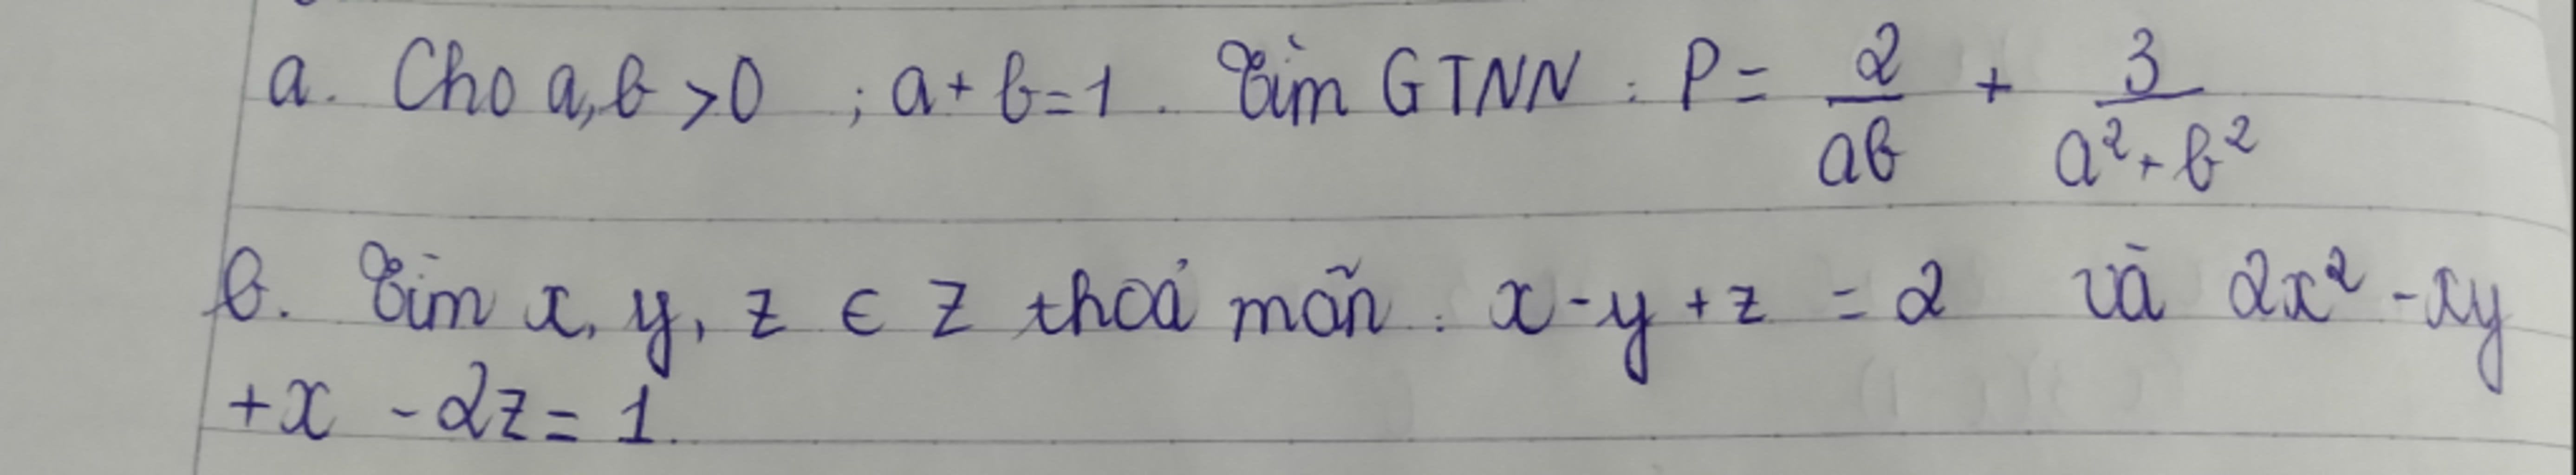 a. Cho a, b > 0 ; a + b = 1. Tìm GTNN : P = 2/ab + 3/(a² + b²)
b. Tìm x, y, z ∈ Z thoả mãn : x - y + z = 2 và 2x² - xy
+ x - 2z = 1.